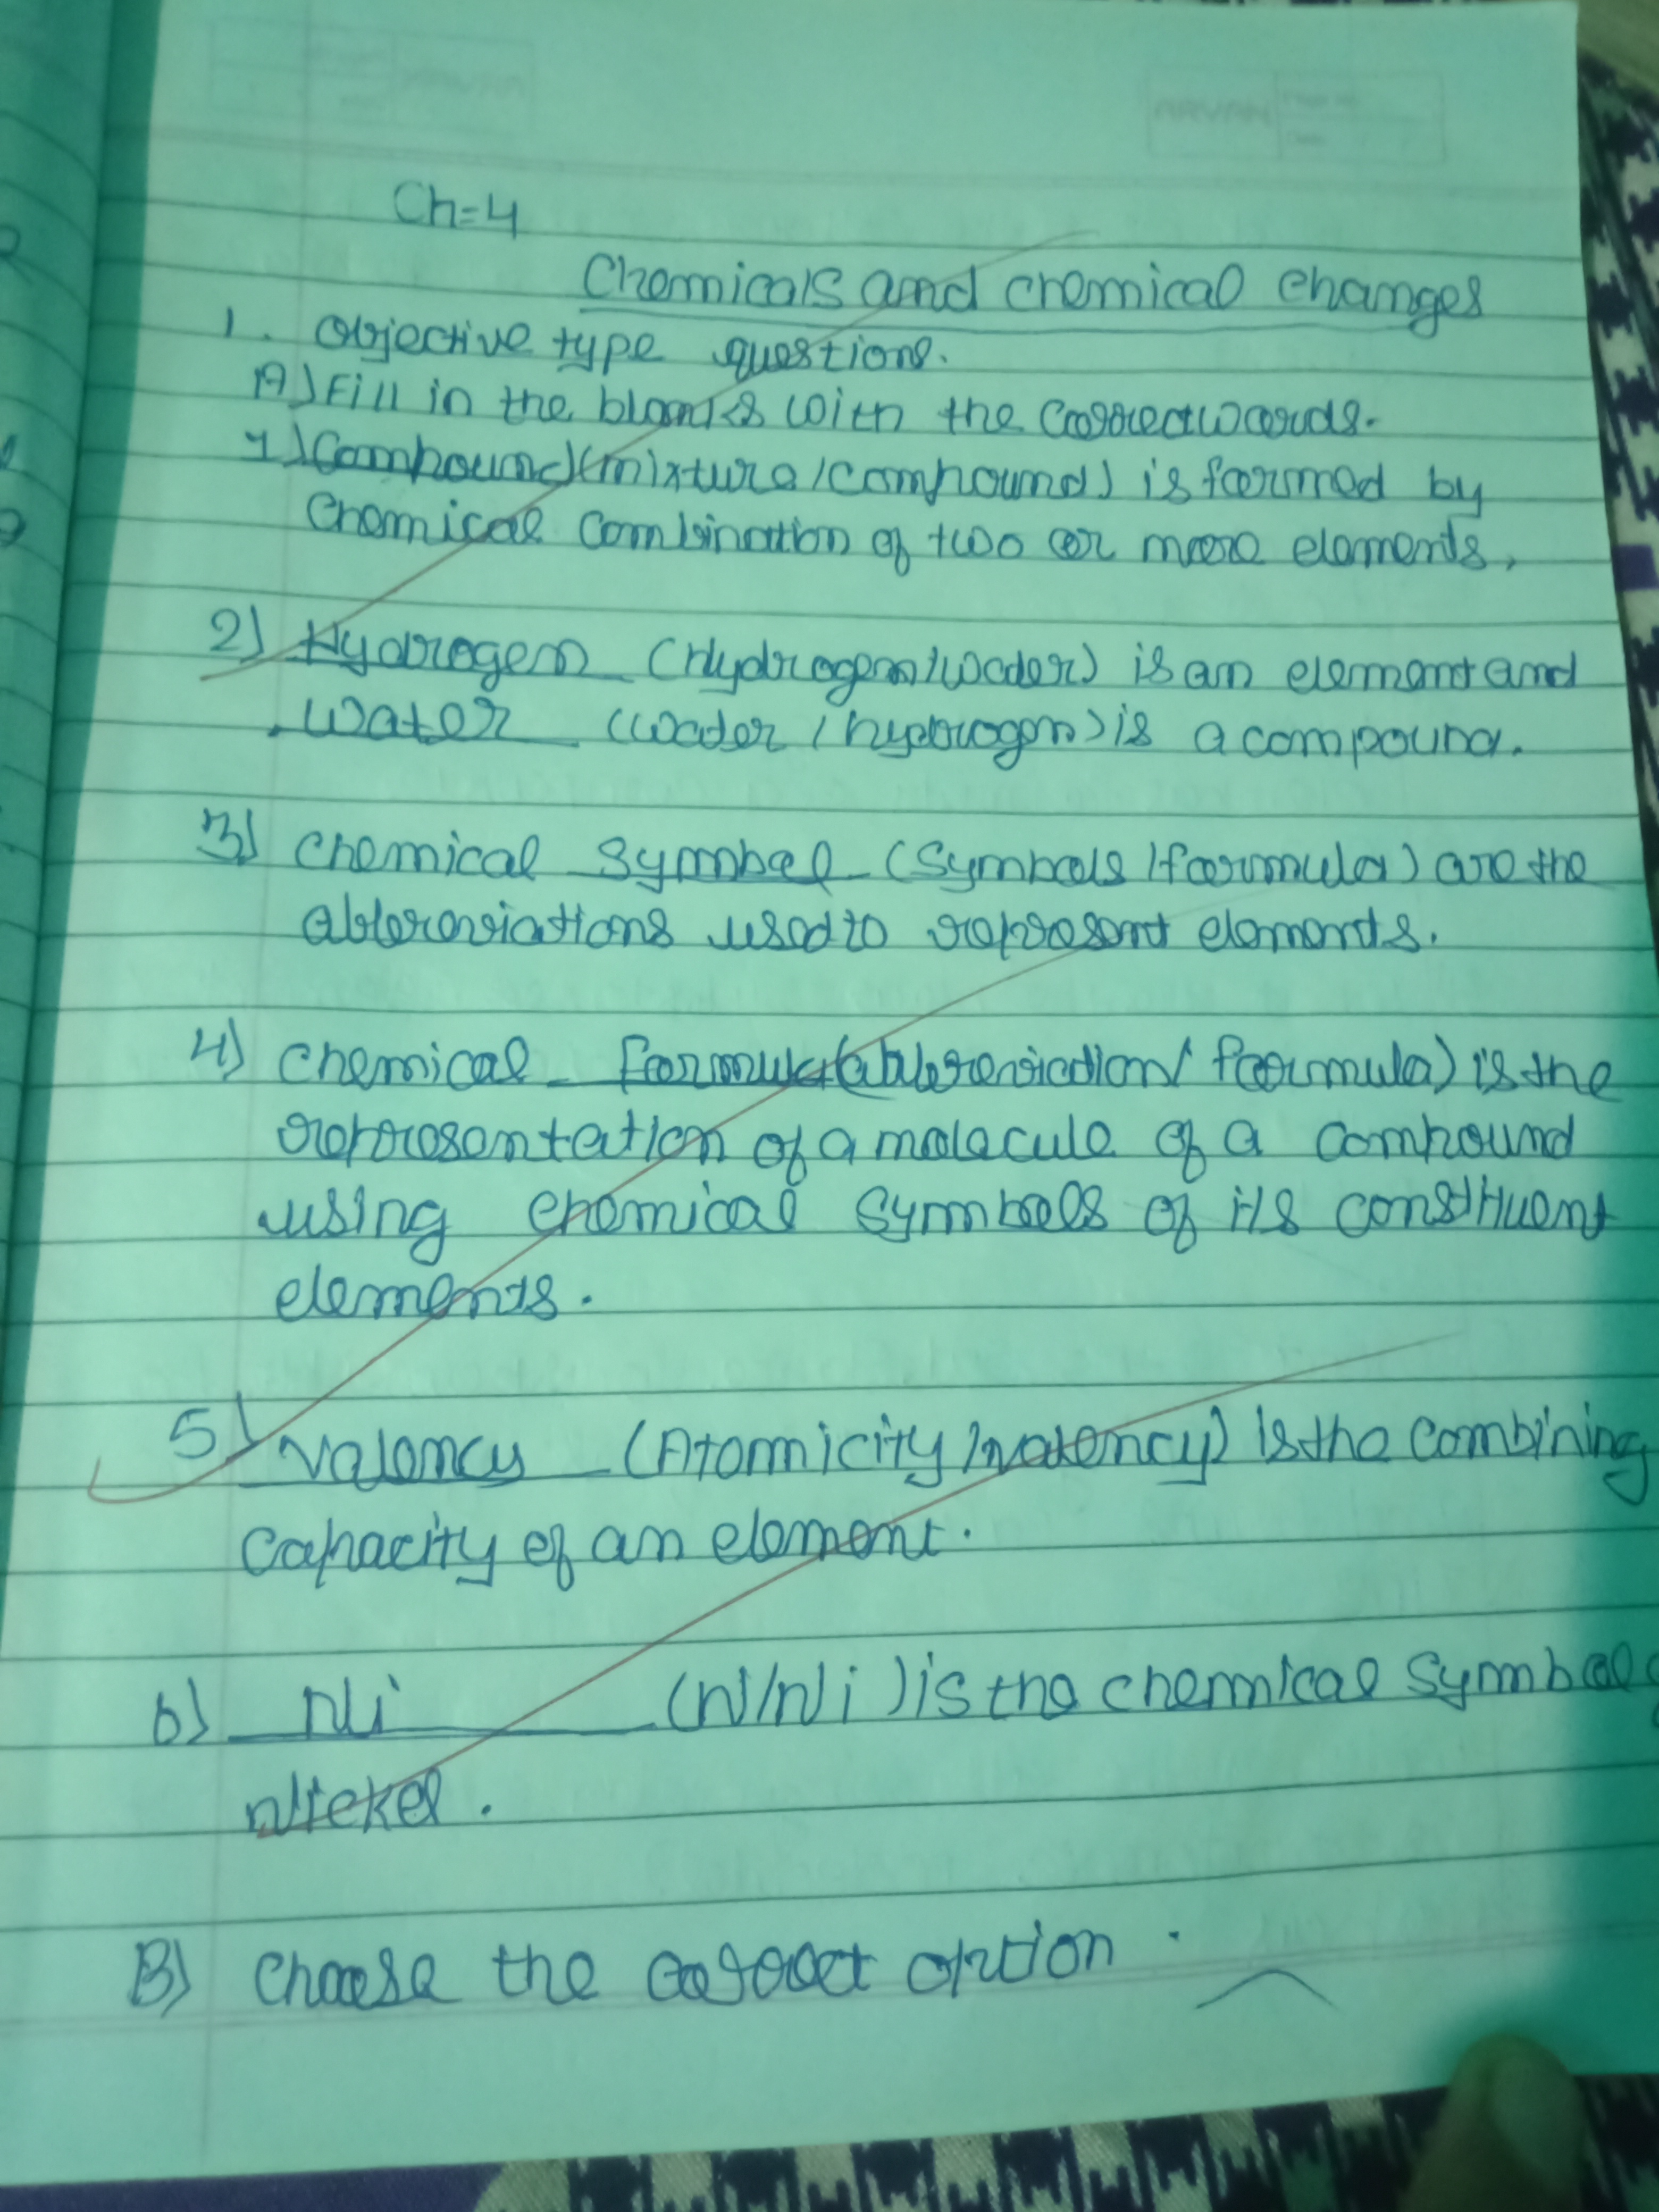 Ch=4
Chemicals and chemical changes
1. Objective type questions.
A) Fill in the blanks with the correct words.
1) Compound (mixture/compound) is formed by
chemical combination of two or more elements,
2) Hydrogen (Hydrogen/water) is an element and
water (water/hydrogen) is a compound.
3) chemical symbol (symbols/formula) are the
abbreviations used to represent elements.
4) chemical formula (abbreviation/formula) is the
representation of a molecule of a compound
using chemical symbols of its constituent
elements.
5) valency (Atomicity/valency) is the combining
capacity of an element.
6) Ni (N/Ni) is the chemical symbol
Nickel.
B) Choose the correct option.